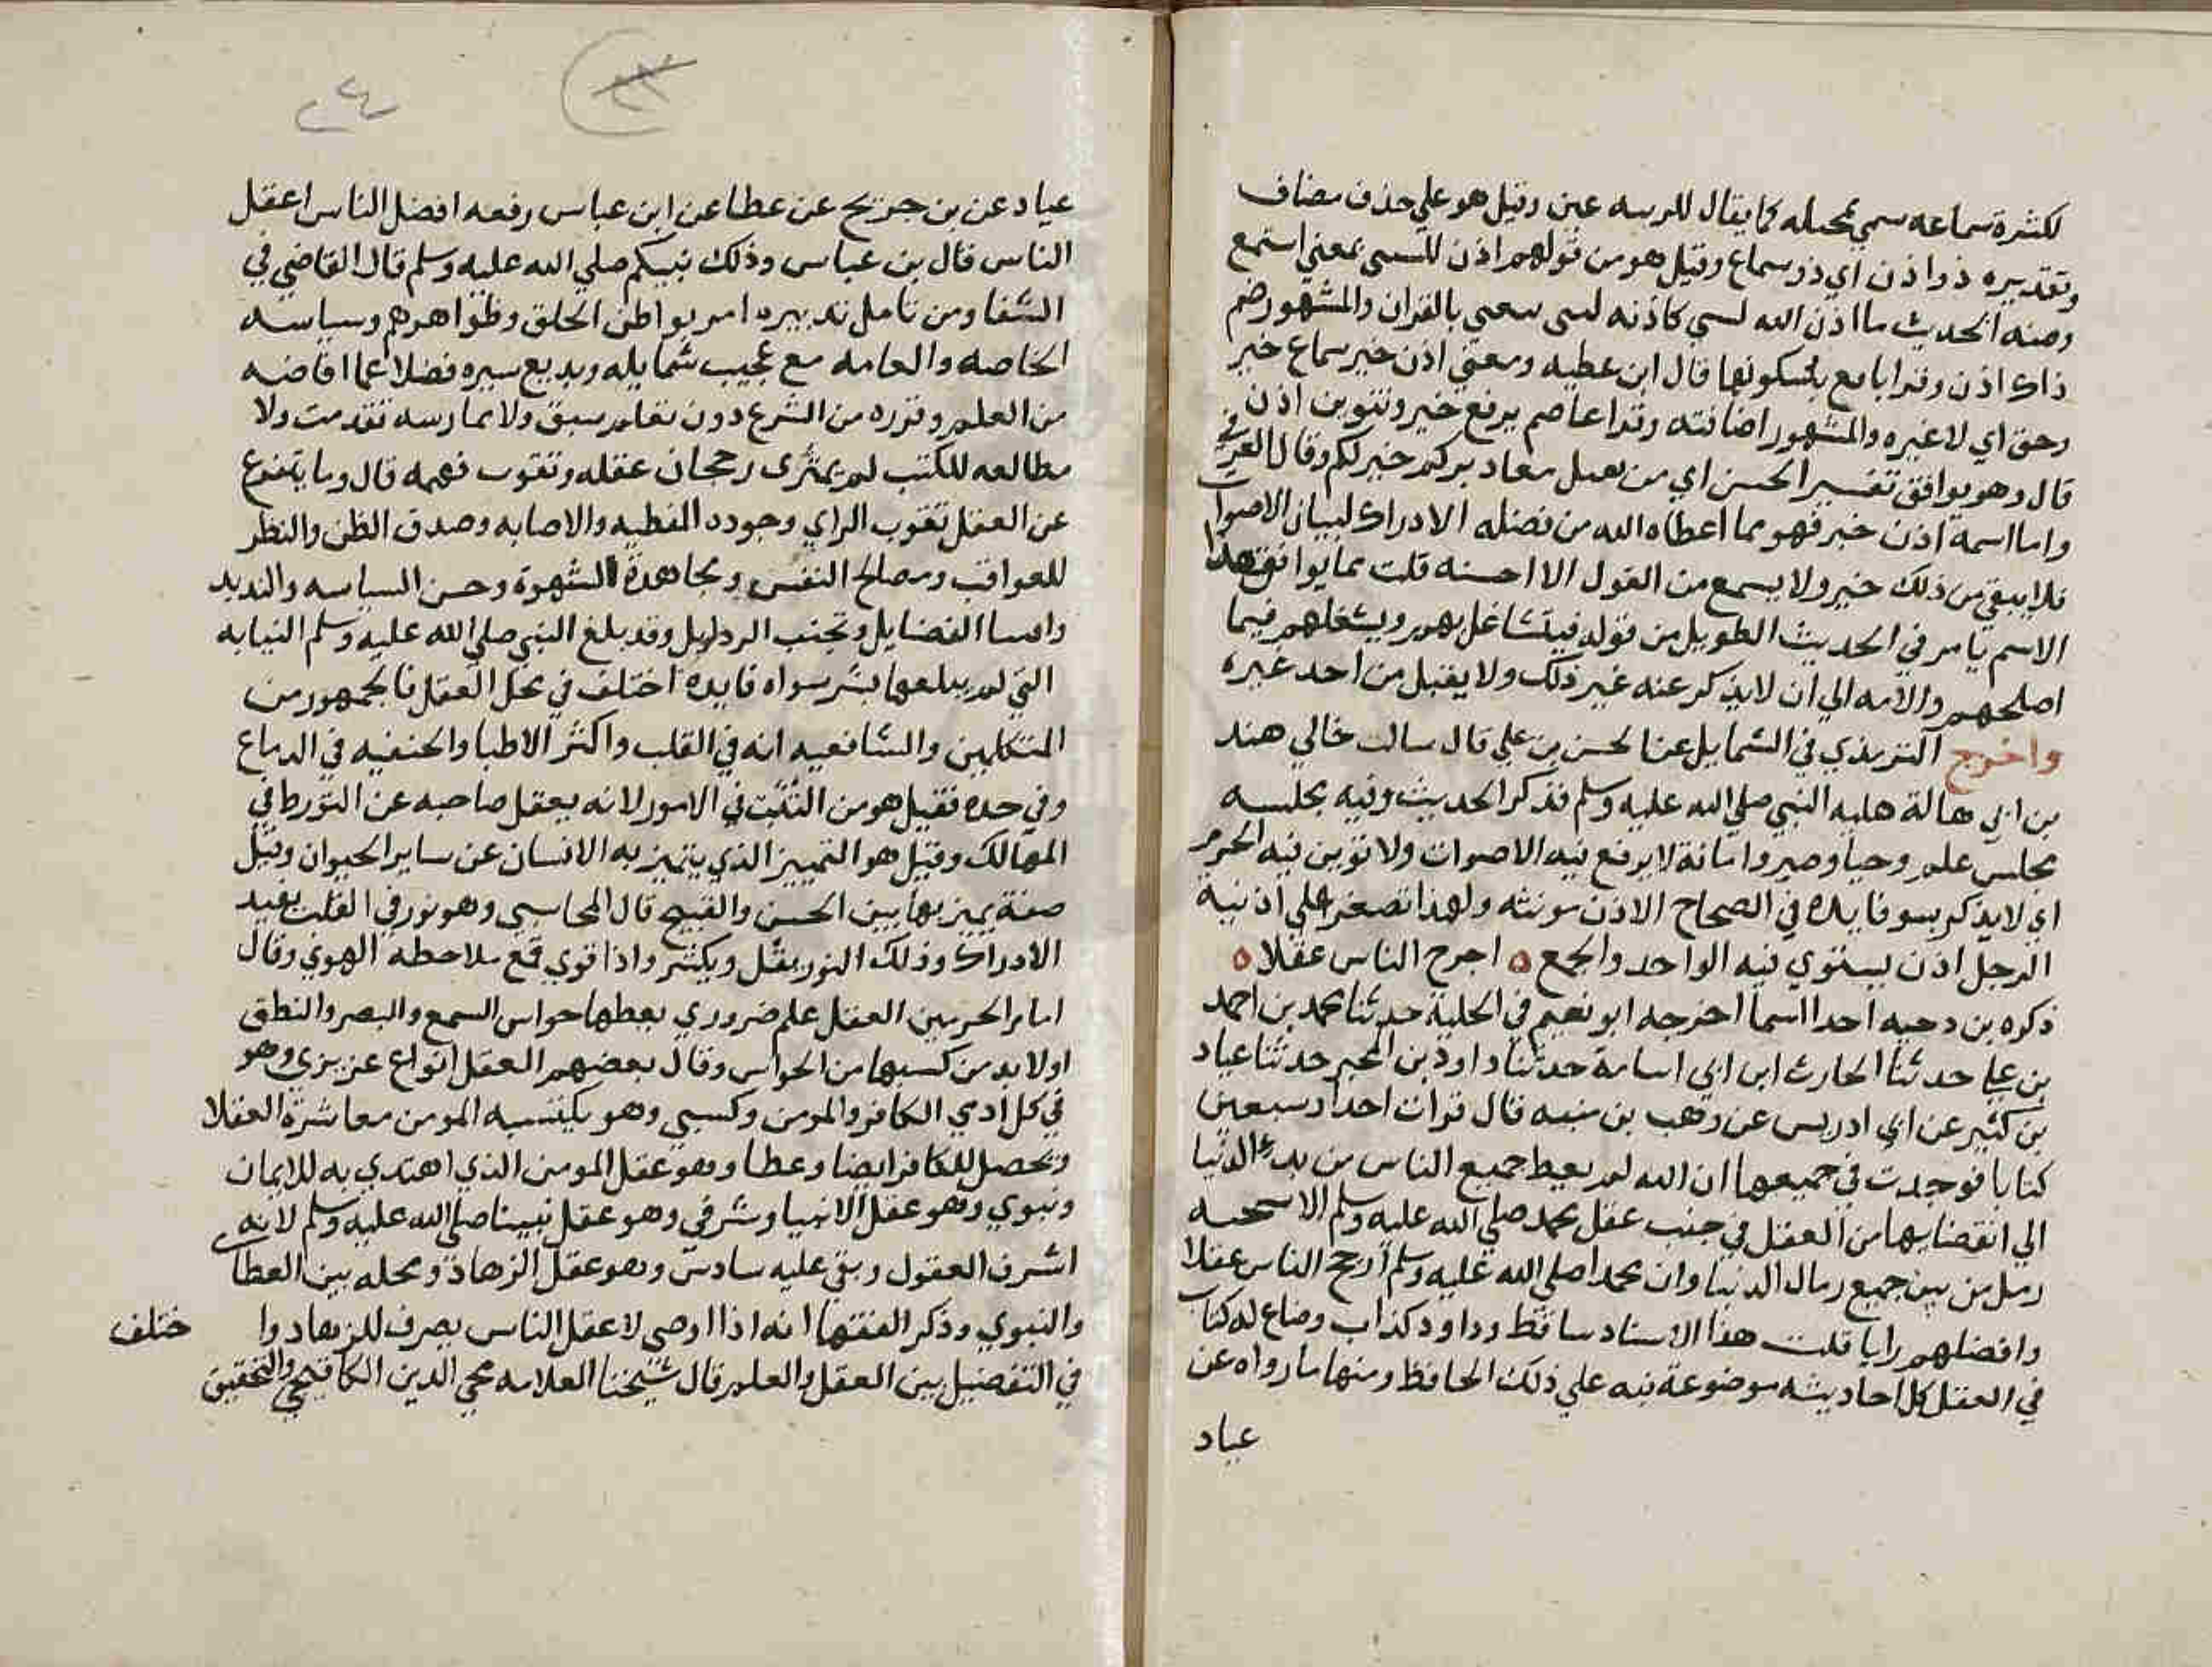 لكثرة سماعه سمي بمحله كما يقال للربيه عين وقيل هو علي حذف مضاف
وتقديره ذوا ذن اي ذو سماع وقيل هو من قولهم اذن للشي بمعني استمع
ومنه الحديث ما اذن الله لشي كاذنه لنبي يتغني بالقران والمشهور ضم
ذال اذن وقرا نافع بسكونها قال ابن عطيه ومعني اذن خير سماع خير
وحق اي لا غيره والمشهور اضافته وقرا عاصم برفع خير وتنوين اذن
قال وهو يوافق تفسير الحسن اي من يقبل معاديركم خير لكم وقال العزفي
واما اسمه اذن خير فهو مما اعطاه الله من فضله الادراك لبيان الاصوات
فلا يبقي من ذلك خير ولا يسمع من القول الا احسنه قلت مما يوافق هذا
الاسم يا مر في الحديث الطويل من قوله فيتشاغل بهم ويشغلهم فيما
اصلحهم والامه الي ان لا يذكر عنه غير ذلك ولا يقبل من احد غيره
واخرج الترمذي في الشمايل عن الحسن بن علي قال سالت خالي هند
بن ابي هالة حليه النبي صلي الله عليه وسلم فذكر الحديث وفيه مجلسه
مجلس علم وحيا وصبر وامانة لا يرفع فيه الاصوات ولا تؤبن فيه الحرم
اي لا يذكر بسو فايده في الصحاح الاذن مونثه ولهذا تصغر علي اذنيه
الرجل اذن يستوي فيه الواحد والجمع ه اجرح الناس عقلا ه
ذكره بن دحيه احد السما اخرجه ابو نعيم في الحلية حدثنا محمد بن احمد
بن علي حدثنا الحارث ابن ابي اسامة حدثنا داود بن المحبر حدثنا عباد
بن كثير عن ابي ادريس عن وهب بن منبه قال قرات احدا وسبعين
كتابا فوجدت في جميعها ان الله لم يعط جميع الناس من بدء الدنيا
الي انقضايها من العقل في جنب عقل محمد صلي الله عليه وسلم الا كحبه
رمل من بين جميع رمال الدنيا وان محمدا صلي الله عليه وسلم ارجح الناس عقلا
وافضلهم رايا قلت هذا الاسناد ساقط وداود كذاب وضاع له كتاب
في العقل كل احاديثه موضوعة نبه علي ذلك الحافظ ومنها ما رواه عن
عباد
٢٤
عباد عن بن جريج عن عطا عن ابن عباس رفعه افضل الناس اعقل
الناس قال بن عباس وذلك نبيكم صلي الله عليه وسلم قال القاضي في
الشفا ومن تامل تدبيره امر بواطن الخلق وظواهرهم وسياسه
الخاصه والعامه مع عجيب شمايله وبديع سيره فضلا عما افاضه
من العلم وقرره من الشرع دون تعلم سبق ولا ممارسه تقدمت ولا
مطالعه للكتب لم يمتري رجحان عقله وثقوب فهمه قال وما يتفرع
عن العقل ثقوب الراي وجودة الفطنه والاصابه وصدق الظن والنظر
للعواقب ومصالح النفس ومجاهدة الشهوة وحسن السياسه والتدبير
واقتنا الفضايل وتجنب الرذايل وقد بلغ النبي صلي الله عليه وسلم النهايه
التي لم يبلغها بشر سواه فايدة اختلف في محل العقل فالجمهور من
المتكلمين والشافعيه انه في القلب واكثر الاطبا والحنفيه في الدماغ
وفي حده فقيل هو من التثبت في الامور لانه يعقل صاحبه عن التورط في
المهالك وقيل هو التمييز الذي يتميز به الانسان عن ساير الحيوان وقيل
صفة يميز بها بين الحسن والقبيح قال المحاسبي وهو نور في القلب يفيد
الادراك وذلك النور يقل ويكثر واذا قوي قمع ملاحظة الهوي وقال
امام الحرمين العقل علم ضروري يعطها حواس السمع والبصر والنطق
او لا بد من كسبها من الحواس وقال بعضهم العقل انواع غريزي وهو
في كل ادمي الكافر والمومن وكسبي وهو يكتسبه المومن معاشرة العقلا
ويحصل للكافر ايضا وعطا وهو عقل المومن الذي اهتدي به للايمان
ونبوي وهو عقل الانبيا وشرفي وهو عقل نبينا صلي الله عليه وسلم لانه
اشرف العقول وبقي عليه سادس وهو عقل الزهاد ومحله بين العطاي
والنبوي وذكر الفقها انه اذا اوصي لاعقل الناس يصرف للزهاد وا ختلف
في التفضيل بين العقل والعلم قال شيخنا العلامه محي الدين الكافيجي والتحقيق